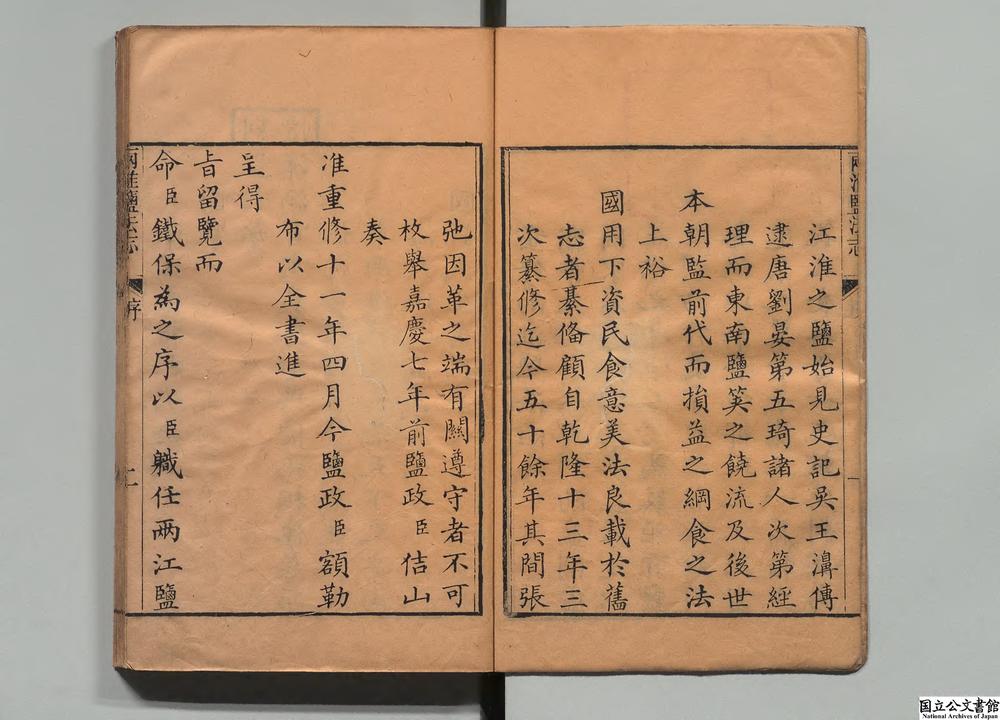 江淮之鹽始見史記吳王濞傳
逮唐劉晏第五琦諸人次第經
理而東南鹽筴之饒流及後世
本朝監前代而損益之綱食之法
上裕
國用下資民食意美法良載於舊
志者綦備顧自乾隆十三年三
次纂修迄今五十餘年其間張
弛因革之端有關遵守者不可
枚舉嘉慶七年前鹽政臣佶山
奏
准重修十一年四月今鹽政臣額勒
布以全書進
呈得
旨留覽而
命臣鐵保為之序以臣職任兩江鹽
兩淮鹽法志
序
一
兩淮鹽法志
序
国立公文書館
National Archives of Japan